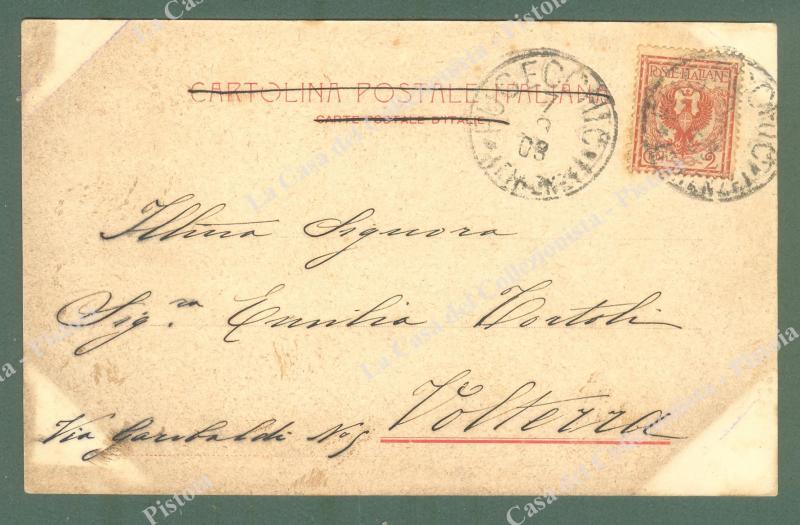 CARTOLINA POSTALE ITALIANA
CARTE POSTALE D'ITALIE
POSTE ITALIANE
2
7
03
(FIRENZE)
Illma Signora
Sig.ra Emilia Tortoli
Volterra
Via Garibaldi No 5
La Casa del Collezionista - Pistoia